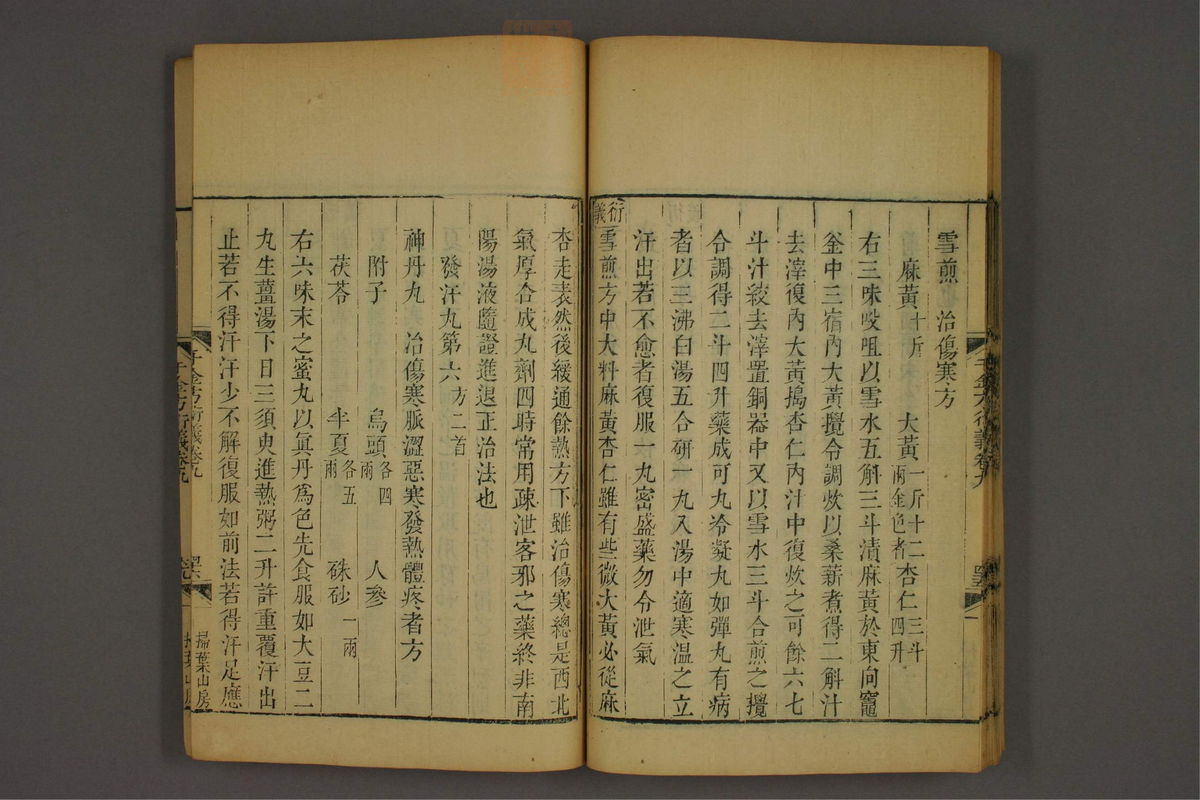 雪煎 治傷寒方
麻黃十斤 大黃一斤十二兩金色者 杏仁三斗四升
右三味㕮咀以雪水五斛三斗漬麻黃於東向竈
釜中三宿內大黃攪令調炊以桑薪煮得二斛汁
去滓復內大黃搗杏仁內汁中復炊之可餘六七
斗汁絞去滓置銅器中又以雪水三斗合煎之攪
合調得二斗四升藥成可丸冷凝丸如彈丸有病
者以三沸白湯五合研一丸入湯中適寒溫之立
汗出若不愈者復服一丸密盛藥勿令泄氣
衍義
雪煎方中大料麻黃杏仁雖有些微大黃必從麻
杏走表然後緩通餘熱方下雖治傷寒總是西北
氣厚合成丸劑四時常用疎泄客邪之藥終非南
陽湯液隨證進退正治法也
發汗丸第六 方二首
神丹丸 治傷寒脈澀惡寒發熱體疼者方
附子 烏頭各四兩 人參
茯苓 半夏各五兩 硃砂一兩
右六味末之蜜丸以眞丹爲色先食服如大豆二
丸生薑湯下日三須臾進熱粥二升許重覆汗出
止若不得汗汗少不解復服如前法若得汗足應
千金方衍義卷九
掃葉山房